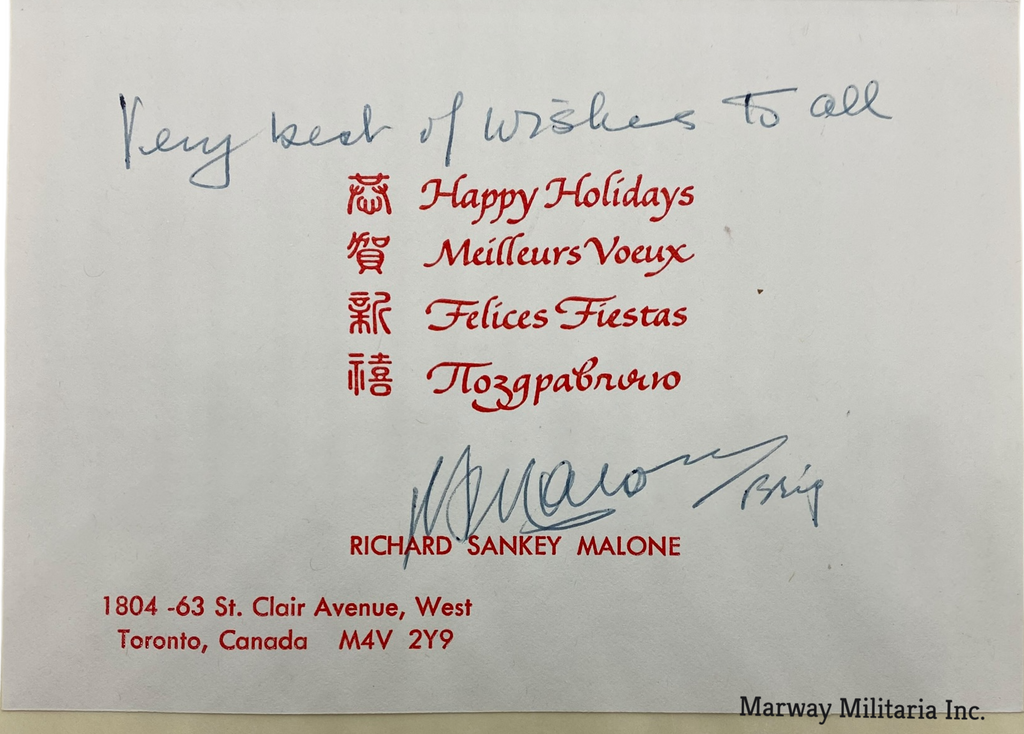 Very best of wishes to all
恭 Happy Holidays
賀 Meilleurs Voeux
新 Felices Fiestas
禧 Поздравляю
RSMalone / Brig
RICHARD SANKEY MALONE
1804 -63 St. Clair Avenue, West
Toronto, Canada M4V 2Y9
Marway Militaria Inc.